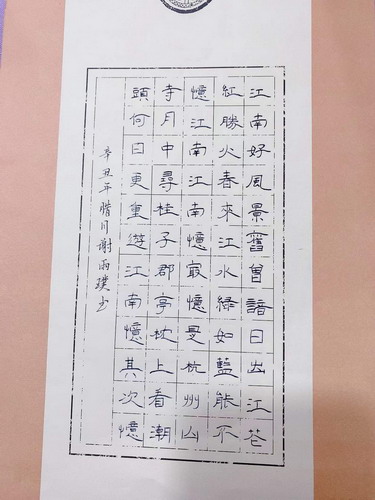 江南好風景舊曾諳日出江花
紅勝火春來江水綠如藍能不
憶江南江南憶最憶是杭州山
寺月中尋桂子郡亭枕上看潮
頭何日更重遊江南憶其次憶
辛丑年腊月謝雨璞书